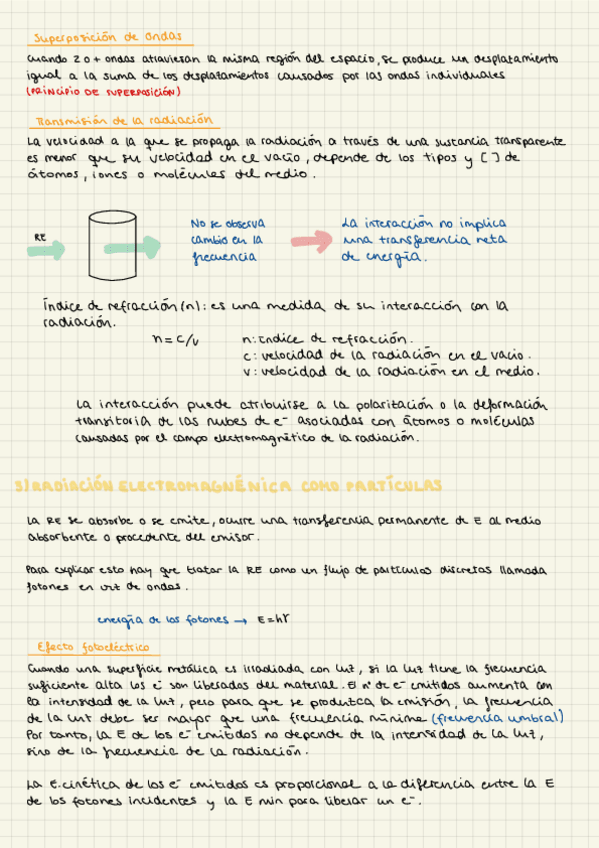 Superposición de ondas
cuando 2 o + ondas atraviesan la misma región del espacio, se produce un desplazamiento
igual a la suma de los desplazamientos causados por las ondas individuales
(PRINCIPIO DE SUPERPOSICIÓN)
Transmisión de la radiación
La velocidad a la que se propaga la radiación a través de una sustancia transparente
es menor que su velocidad en el vacío, depende de los tipos y [ ] de
átomos, iones o moléculas del medio.
RE
No se observa
cambio en la
frecuencia
La interacción no implica
una transferencia neta
de energía.
Índice de refracción (n): es una medida de su interacción con la
radiación.
n = c/v
n: índice de refracción.
c: velocidad de la radiación en el vacío.
v: velocidad de la radiación en el medio.
La interacción puede atribuirse a la polarización o la deformación
transitoria de las nubes de e⁻ asociadas con átomos o moléculas
causadas por el campo electromagnético de la radiación.
3) RADIACIÓN ELECTROMAGNÉNICA COMO PARTÍCULAS
La RE se absorbe o se emite, ocurre una transferencia permanente de E al medio
absorbente o procedente del emisor.
Para explicar esto hay que tratar la RE como un flujo de partículas discretas llamada
fotones en vez de ondas.
energía de los fotones → E = hr
Efecto fotoeléctrico
Cuando una superficie metálica es irradiada con luz, si la luz tiene la frecuencia
suficiente alta los e⁻ son liberados del material. El nº de e⁻ emitidos aumenta con
la intensidad de la luz, pero para que se produzca la emisión, la frecuencia
de la luz debe ser mayor que una frecuencia mínima (frecuencia umbral)
Por tanto, la E de los e⁻ emitidos no depende de la intensidad de la luz,
sino de la frecuencia de la radiación.
La E.cinética de los e⁻ emitidos es proporcional a la diferencia entre la E
de los fotones incidentes y la E min para liberar un e⁻.